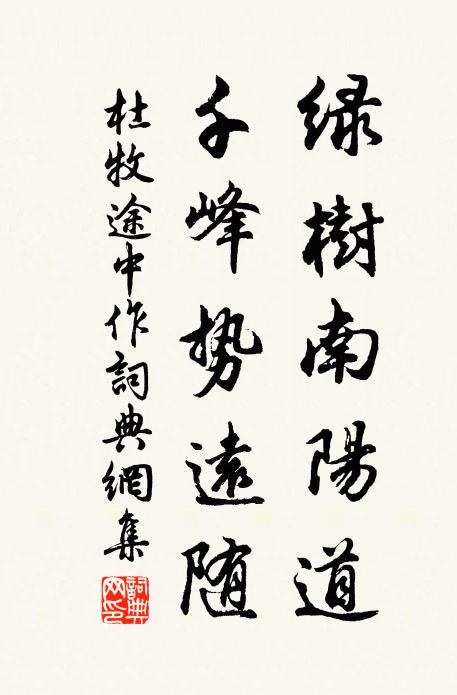 绿樹南陽道
千峰势遠随
杜牧途中作詞典網集
詞典網印